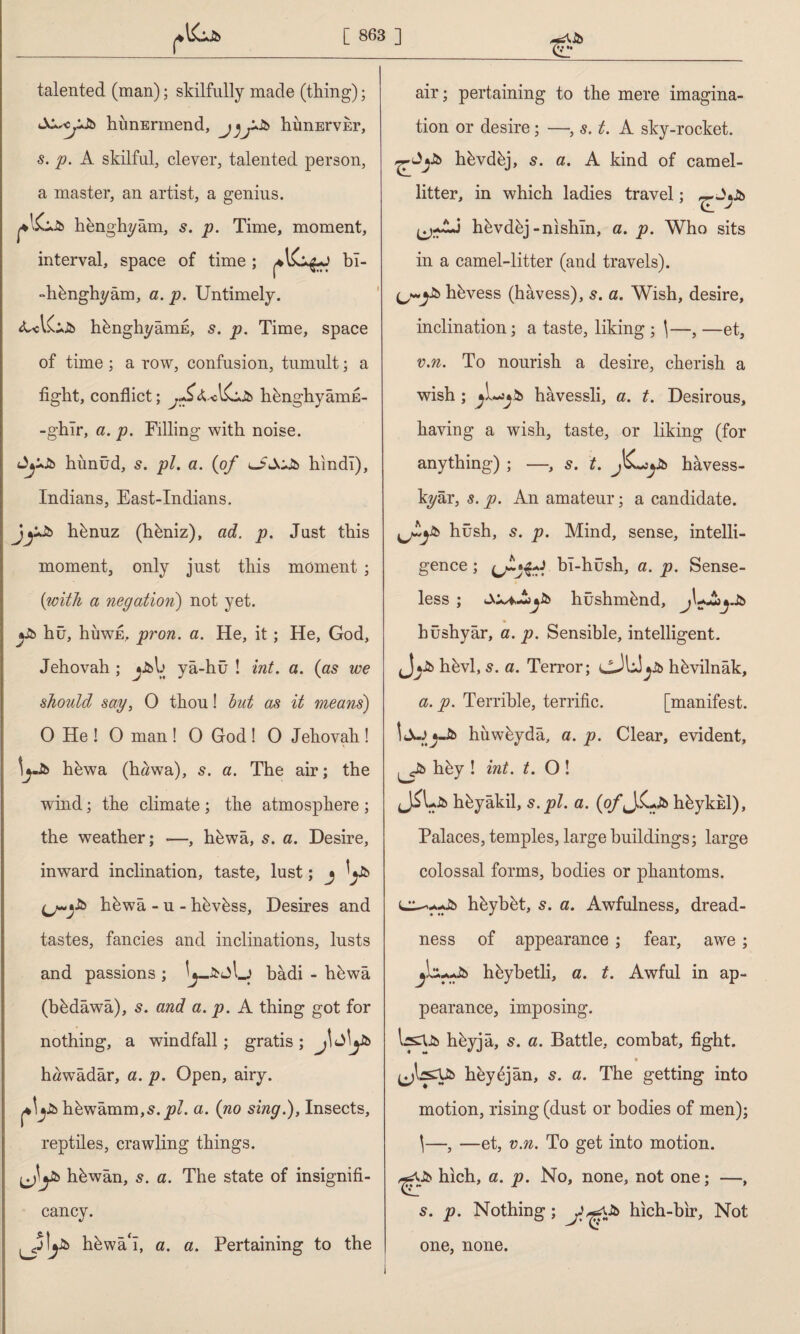 هنكام [ 863 ] هيچ
talented (man); skilfully made (thing);
هنرمند hünᴇrmend, هنرور hünᴇrvᴇr,
s. p. A skilful, clever, talented person,
a master, an artist, a genius.
هنكام hènghyām, s. p. Time, moment,
interval, space of time; بيهنكام bī-
-hènghyām, a. p. Untimely.
هنكامه hènghyāmᴇ, s. p. Time, space
of time; a row, confusion, tumult; a
fight, conflict; هنكامه كير hènghyāmᴇ-
-ghīr, a. p. Filling with noise.
هنود hünūd, s. pl. a. (of هندى hindī),
Indians, East-Indians.
هنوز hènuz (hèniz), ad. p. Just this
moment, only just this moment;
(with a negation) not yet.
هو hū, hüwᴇ, pron. a. He, it; He, God,
Jehovah; ياهو yā-hū! int. a. (as we
should say, O thou! but as it means)
O He! O man! O God! O Jehovah!
هوا hèwa (hawa), s. a. The air; the
wind; the climate; the atmosphere;
the weather; —, hèwā, s. a. Desire,
inward inclination, taste, lust; هوا و
هوس hèwā-u-hèvèss, Desires and
tastes, fancies and inclinations, lusts
and passions; بادهوا bādi-hèwā
(bèdāwā), s. and a. p. A thing got for
nothing, a windfall; gratis; هوادار
hawādār, a. p. Open, airy.
هوام hèwāmm, s. pl. a. (no sing.), Insects,
reptiles, crawling things.
هوان hèwān, s. a. The state of insignifi-
cancy.
هوائى hèwā'ī, a. a. Pertaining to the
air; pertaining to the mere imagina-
tion or desire; —, s. t. A sky-rocket.
هودج hèvdèj, s. a. A kind of camel-
litter, in which ladies travel; هودج
نشين hèvdèj-nishīn, a. p. Who sits
in a camel-litter (and travels).
هوس hèvess (hàvess), s. a. Wish, desire,
inclination; a taste, liking; ا—, —et,
v.n. To nourish a desire, cherish a
wish; هوسلو hàvessli, a. t. Desirous,
having a wish, taste, or liking (for
anything); —, s. t. هوسكار hàvess-
kyār, s. p. An amateur; a candidate.
هوش hūsh, s. p. Mind, sense, intelli-
gence; بيهوش bī-hūsh, a. p. Sense-
less; هوشمند hūshmènd, هوشيار
hūshyār, a. p. Sensible, intelligent.
هول hèvl, s. a. Terror; هولناك hèvilnāk,
a. p. Terrible, terrific. [manifest.
هويدا hüwèydā, a. p. Clear, evident,
هى hèy! int. t. O!
هياكل hèyākil, s. pl. a. (of هيكل hèykᴇl),
Palaces, temples, large buildings; large
colossal forms, bodies or phantoms.
هيبت hèybèt, s. a. Awfulness, dread-
ness of appearance; fear, awe;
هيبتلو hèybetli, a. t. Awful in ap-
pearance, imposing.
هيجا hèyjā, s. a. Battle, combat, fight.
هيجان hèyéjān, s. a. The getting into
motion, rising (dust or bodies of men);
ا—, —et, v.n. To get into motion.
هيچ hìch, a. p. No, none, not one; —,
s. p. Nothing; هيچ بر hìch-bìr, Not
one, none.